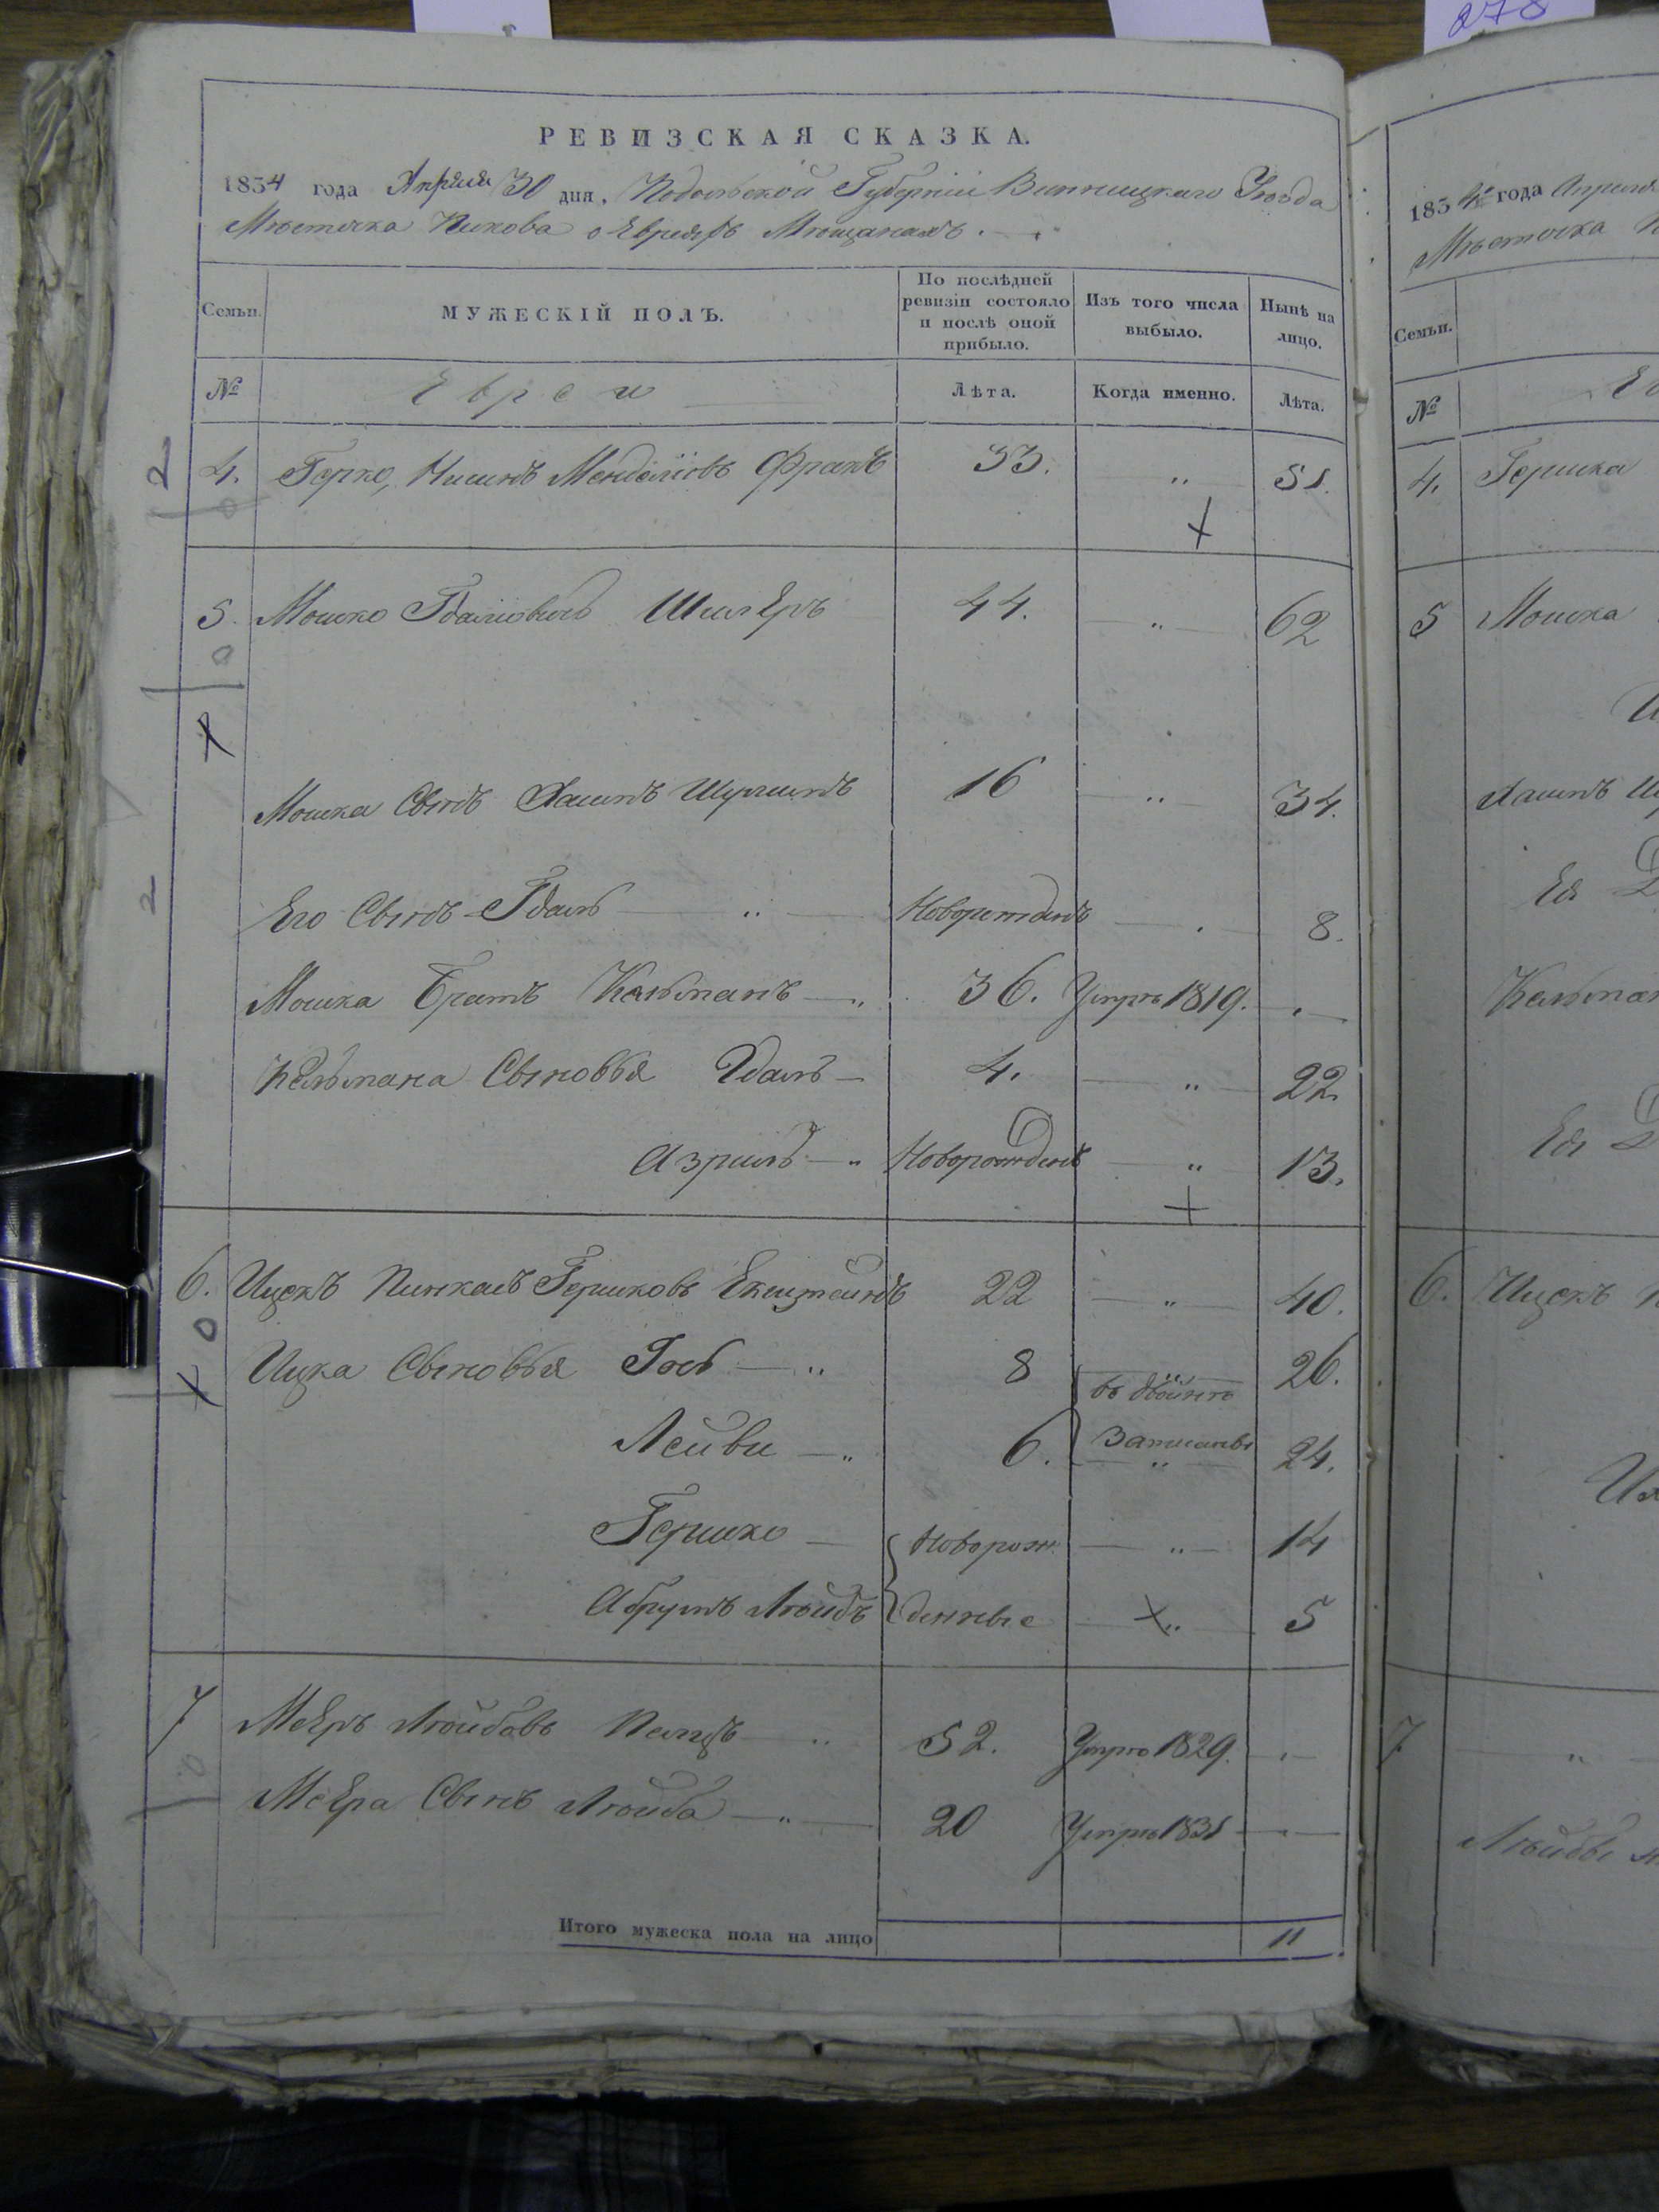 278
РЕВИЗСКАЯ СКАЗКА.
1834 года Апреля 30 дня, Подольской Губерніи Винницкаго Уѣзда
Мѣстечка Пикова о Евреяхъ Мѣщанахъ.
Семьи.
МУЖЕСКІЙ ПОЛЪ.
По послѣдней ревизіи состояло и послѣ оной прибыло.
Изъ того числа выбыло.
Нынѣ на лицо.
№
Евреи
Лѣта.
Когда именно.
Лѣта.
2
4. Нисинъ Менделіовъ Франкъ 33. „ 51.
5. Мошко Гдаліовичъ 44. „ 62
Мошка Сынъ Хаимъ 16 „ 34.
2
Его Сынъ Гдаль „ Новорожденъ 8.
Мошка Братъ Кельманъ „ 36. Умръ 1819.
Кельмана Сыновья Гдаль 4. „ 22.
Азриль „ Новорожденъ „ 13.
6. Ицекъ Пинкасъ Гершковъ 22 „ 40.
Ицка Сыновья „ 8 „ 26.
въ двойнѣ
Лейви „ 6. Записаны „ 24.
Гершко Новорож „ 14
Абрумъ Лейбъ денные „ 5
7 Мееръ Лейбовъ „ 52. Умръ 1829.
Меера Сынъ Лейба „ 20 Умръ 1831
Итого мужеска пола на лицо 11
1834 года Апреля
Мѣстечка
Семьи.
№
4. Гершка
5 Мошка
Хаимъ
Ея
Кельман
Ея
6. Ицекъ
7. „
Лейбы